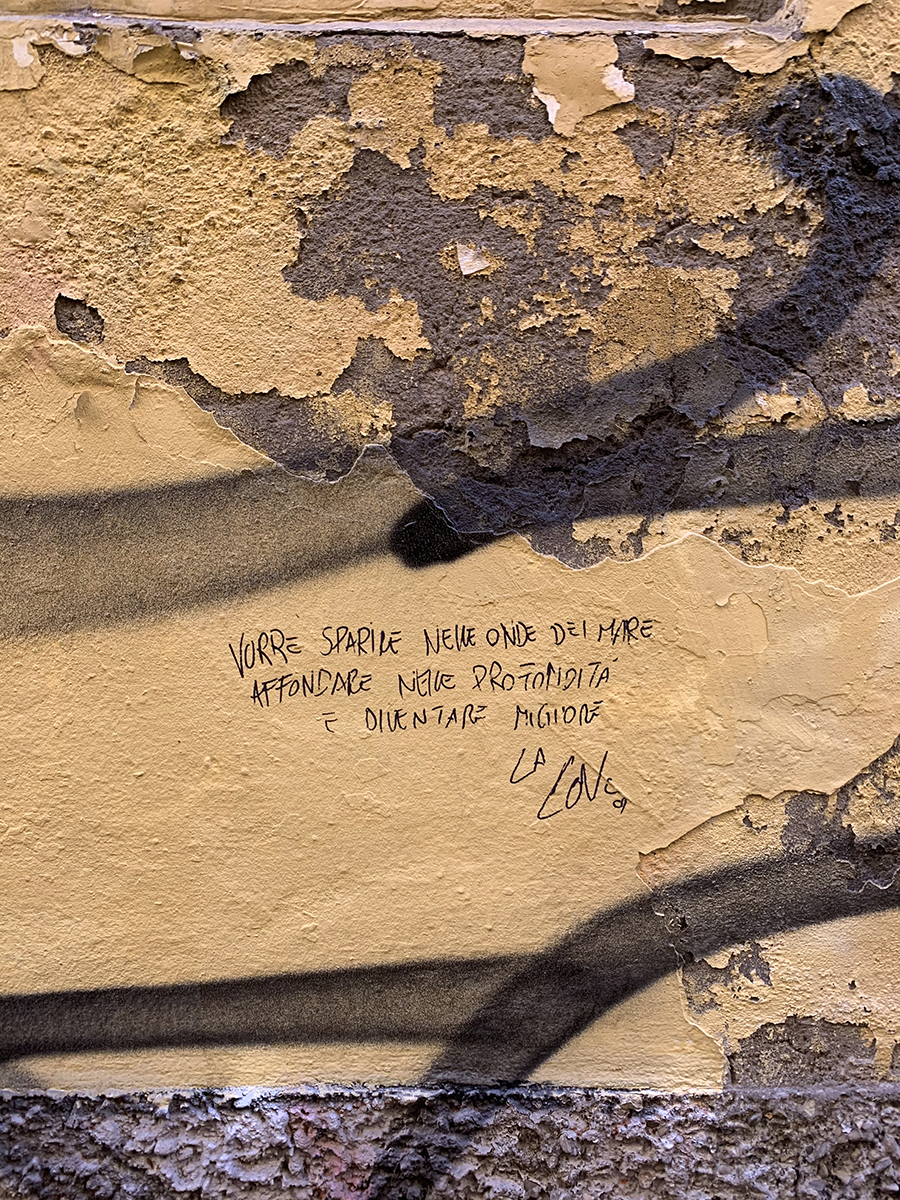 VORRE SPARIRE NELLE ONDE DEL MARE
AFFONDARE NELLE PROFONDITÀ
E DIVENTARE MIGLIORE
LA